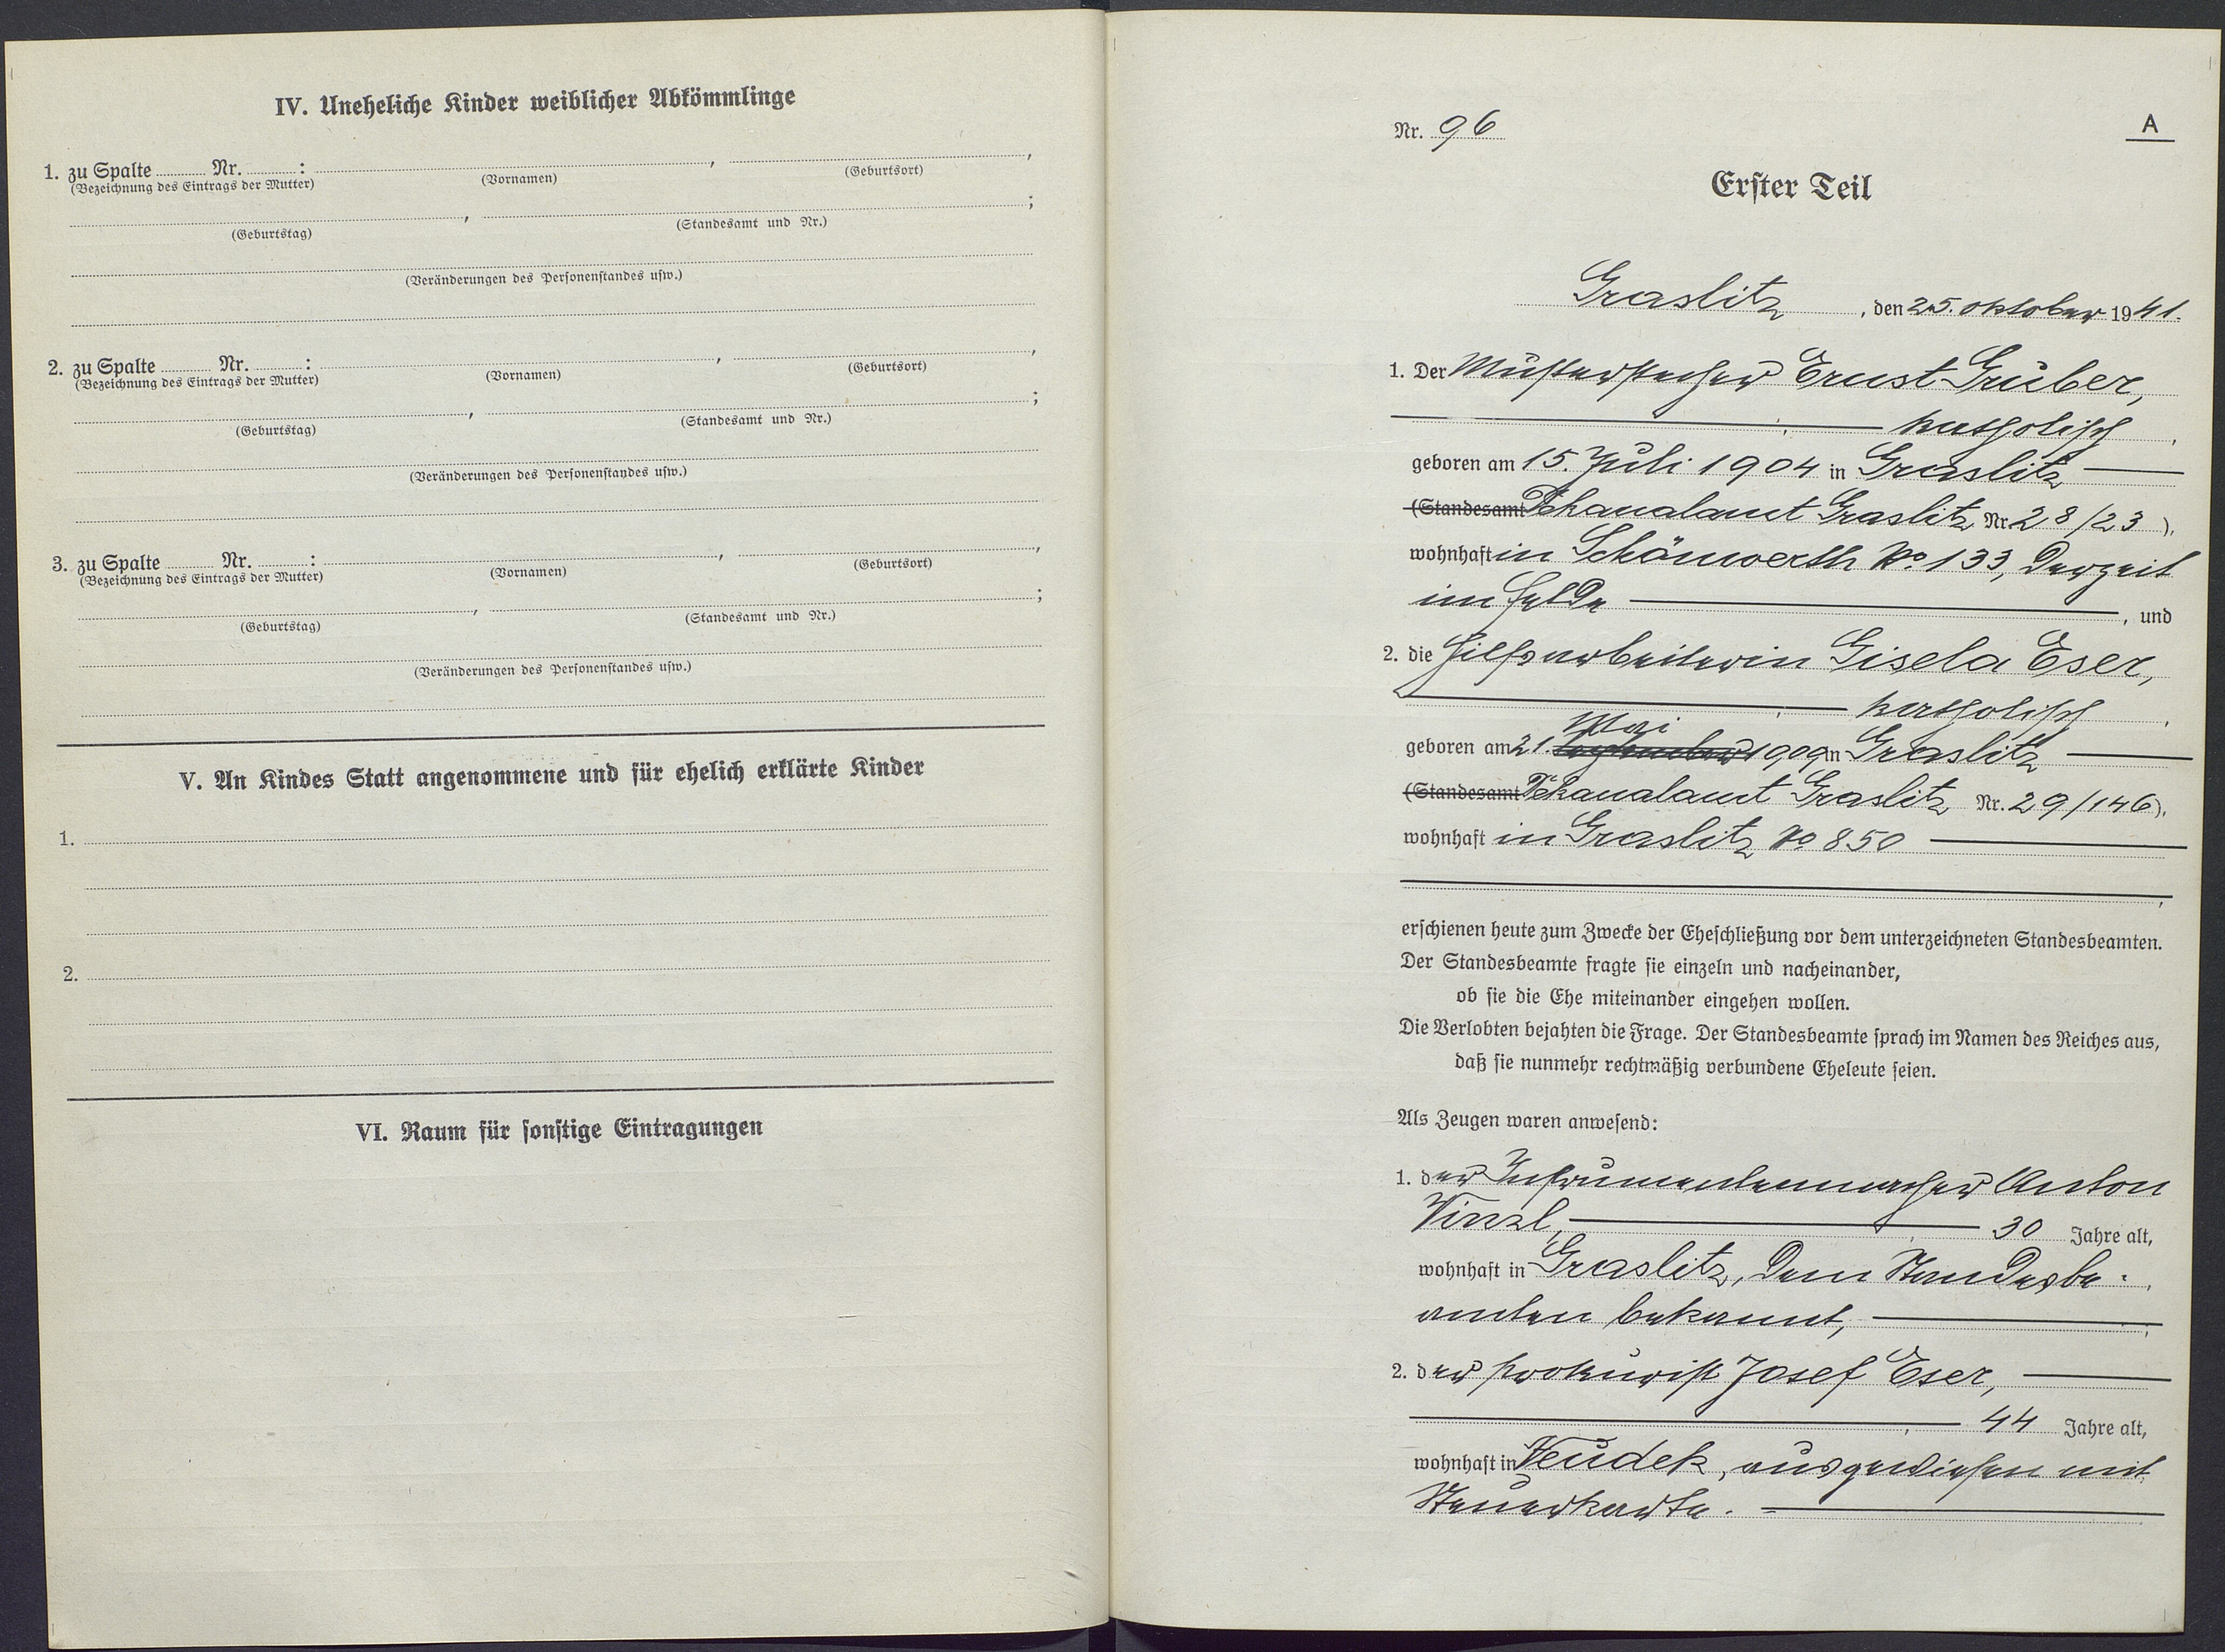 IV. Uneheliche Kinder weiblicher Abkömmlinge
1. zu Spalte ........ Nr. ........ : , ,
(Bezeichnung des Eintrags der Mutter) (Vornamen) (Geburtsort)
, ;
(Geburtstag) (Standesamt und Nr.)
(Veränderungen des Personenstandes usw.)
2. zu Spalte ........ Nr. ........ : , ,
(Bezeichnung des Eintrags der Mutter) (Vornamen) (Geburtsort)
, ;
(Geburtstag) (Standesamt und Nr.)
(Veränderungen des Personenstandes usw.)
3. zu Spalte ........ Nr. ........ : , ,
(Bezeichnung des Eintrags der Mutter) (Vornamen) (Geburtsort)
, ;
(Geburtstag) (Standesamt und Nr.)
(Veränderungen des Personenstandes usw.)
V. An Kindes Statt angenommene und für ehelich erklärte Kinder
1.
2.
VI. Raum für sonstige Eintragungen
Nr. 96
A
Erster Teil
Graslitz, den 25. Oktober 1941.
1. Der Musterstecher Ernst Gruber,
katholisch,
geboren am 15. Juli 1904 in Graslitz
(Standesamt Dekanalamt Graslitz Nr. 28/23),
wohnhaft in Schönwerth No. 133, derzeit
im Felde, und
2. die Hilfsarbeiterin Gisela Eser,
katholisch,
Mai
geboren am 21. September 1909 in Graslitz
(Standesamt Dekanalamt Graslitz Nr. 29/146),
wohnhaft in Graslitz No 850
erschienen heute zum Zwecke der Eheschließung vor dem unterzeichneten Standesbeamten.
Der Standesbeamte fragte sie einzeln und nacheinander,
ob sie die Ehe miteinander eingehen wollen.
Die Verlobten bejahten die Frage. Der Standesbeamte sprach im Namen des Reiches aus,
daß sie nunmehr rechtmäßig verbundene Eheleute seien.
Als Zeugen waren anwesend:
1. der Instrumentenmacher Anton
Vinzl, 30 Jahre alt,
wohnhaft in Graslitz, dem Standesbe-
amten bekannt,
2. der Prokurist Josef Eser,
44 Jahre alt,
wohnhaft in Neudek, ausgewiesen mit
Steuerkarte.